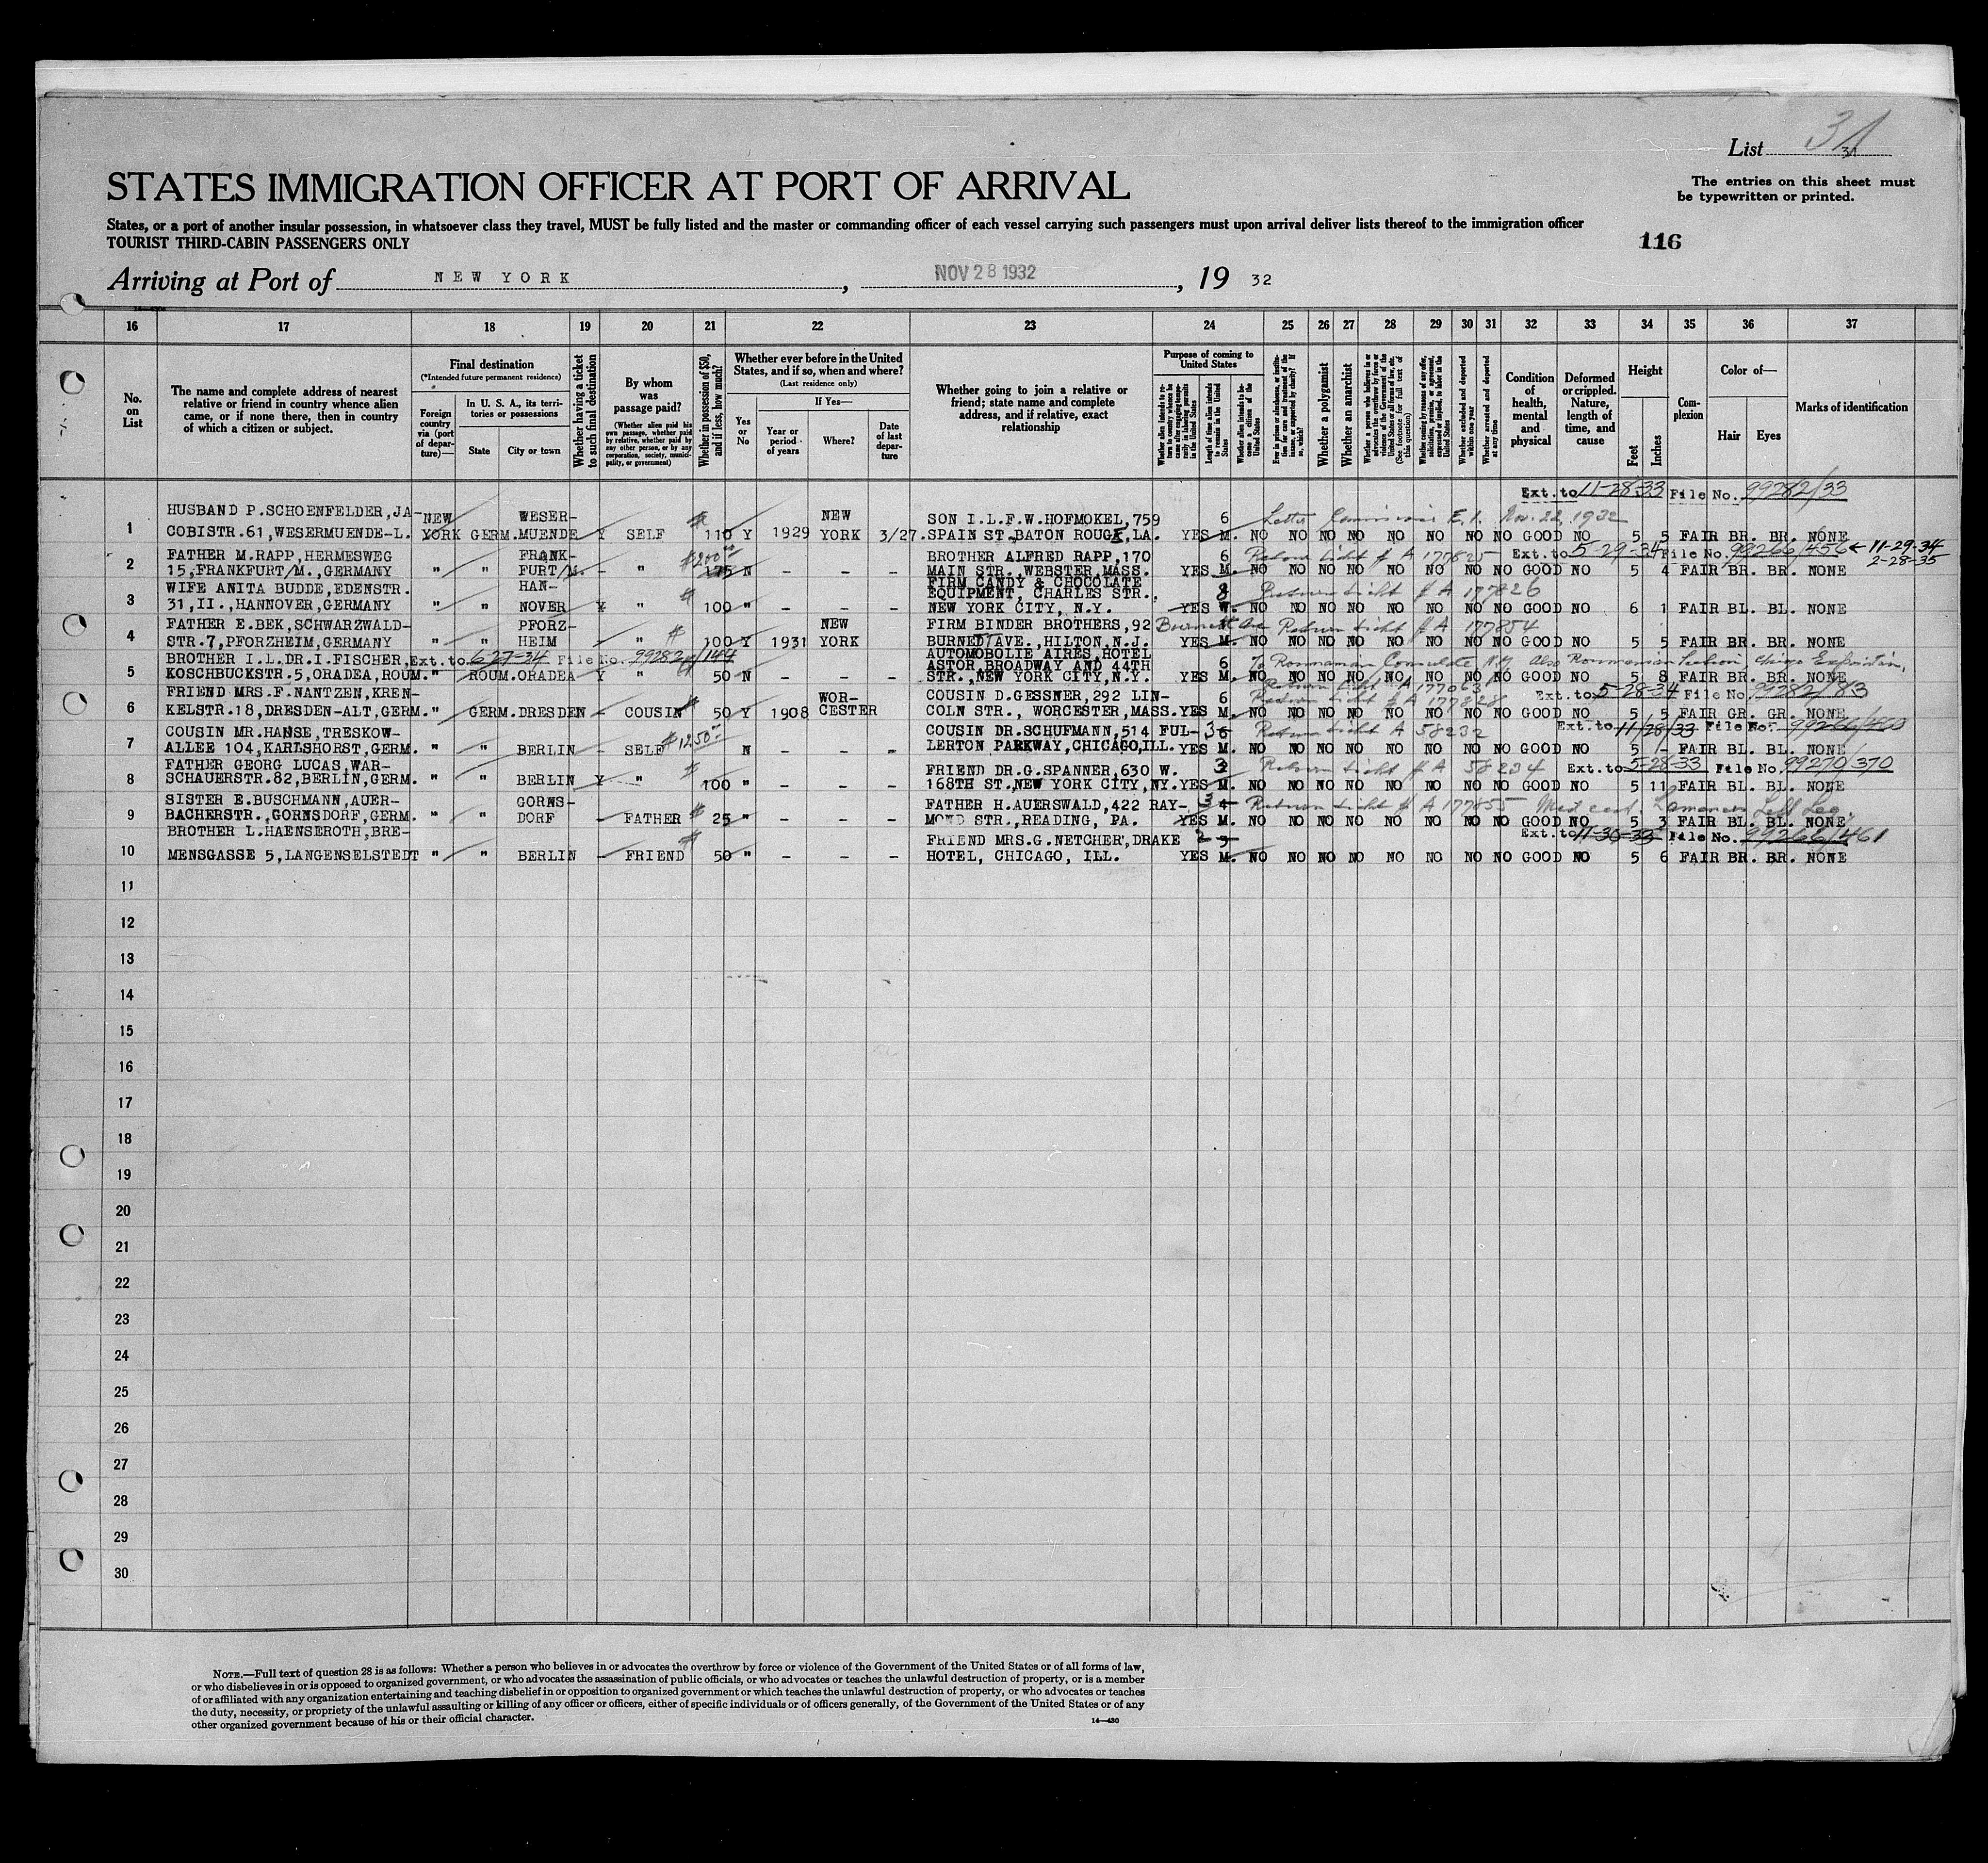 List 31
31
STATES IMMIGRATION OFFICER AT PORT OF ARRIVAL
The entries on this sheet must
be typewritten or printed.
States, or a port of another insular possession, in whatsoever class they travel, MUST be fully listed and the master or commanding officer of each vessel carrying such passengers must upon arrival deliver lists thereof to the immigration officer
TOURIST THIRD-CABIN PASSENGERS ONLY
116
Arriving at Port of NEW YORK, NOV 28 1932, 19 32
16 17 18 19 20 21 22 23 24 25 26 27 28 29 30 31 32 33 34 35 36 37
No. on List
The name and complete address of nearest
relative or friend in country whence alien
came, or if none there, then in country
of which a citizen or subject.
Final destination
(*Intended future permanent residence)
Foreign country via (port of departure)—
In U. S. A., its territories or possessions
State
City or town
Whether having a ticket to such final destination
By whom was passage paid?
(Whether alien paid his own passage, whether paid by relative, whether paid by any other person, or by any corporation, society, municipality, or government)
Whether in possession of $50, and if less, how much?
Whether ever before in the United
States, and if so, when and where?
(Last residence only)
Yes or No
If Yes—
Year or period of years
Where?
Date of last departure
Whether going to join a relative or
friend; state name and complete
address, and if relative, exact
relationship
Purpose of coming to United States
Length of time alien intends to remain in the United States
Whether alien intends to become a citizen of the United States
Whether a polygamist
Whether an anarchist
(See footnote for full text of this question)
Whether excluded and deported within one year
Whether arrested and deported at any time
Condition of health, mental and physical
Deformed or crippled. Nature, length of time, and cause
Height
Feet
Inches
Complexion
Color of—
Hair
Eyes
Marks of identification
Ext. to 11-28-33 File No. 99282/33
HUSBAND P.SCHOENFELDER,JA- NEW WESER- $ NEW SON I.L.F.W.HOFMOKEL,759 6 Letter Nov. 22, 1932
1 COBISTR.61,WESERMUENDE-L. YORK GERM.MUENDE Y SELF 110 Y 1929 YORK 3/27. SPAIN ST.BATON ROUGE,LA. YES M. NO NO NO NO NO NO NO NO GOOD NO 5 5 FAIR BR. BR. NONE
FATHER M.RAPP,HERMESWEG FRANK- $200.00 BROTHER ALFRED RAPP,170 6 Return ticket # A 177825 Ext. to 5-29-34 File No. 99266/456 ← 11-29-34
2-28-35
2 15,FRANKFURT/M.,GERMANY " " FURT/M. - " 175 N - - - MAIN STR.,WEBSTER,MASS. YES M. NO NO NO NO NO NO NO NO GOOD NO 5 4 FAIR BR. BR. NONE
WIFE ANITA BUDDE,EDENSTR. HAN- $ FIRM CANDY & CHOCOLATE
EQUIPMENT, CHARLES STR., 8 Return ticket # A 177826
3 31,II.,HANNOVER,GERMANY " " NOVER Y " 100 " - - - NEW YORK CITY, N.Y. YES W. NO NO NO NO NO NO NO NO GOOD NO 6 1 FAIR BL. BL. NONE
FATHER E.BEK,SCHWARZWALD- PFORZ- $ NEW FIRM BINDER BROTHERS,92 Burnett Ave Return ticket # A 177854
4 STR.7,PFORZHEIM,GERMANY " " HEIM - " 100 Y 1931 YORK BURNED AVE., HILTON,N.J. YES M. NO NO NO NO NO NO NO NO GOOD NO 5 5 FAIR BR. BR. NONE
BROTHER I.L.DR.I.FISCHER, Ext. to 6-27-34 File No. 99282/144 AUTOMOBOLIE AIRES,HOTEL
ASTOR BROADWAY AND 44TH 6 To Roumanian Consulate N.Y. also Roumanian Section, Chicago Exposition,
5 KOSCHBUCKSTR.5,ORADEA,ROUM. " ROUM.ORADEA Y " 50 N - - - STR.,NEW YORK CITY,N.Y. YES M. NO NO NO NO NO NO NO NO GOOD NO 5 8 FAIR BR. BR. NONE
Return ticket # A 177063
FRIEND MRS.F.NANTZEN,KREN- WOR- COUSIN D.GESSNER,292 LIN- 6 Return ticket # A 177828 Ext. to 5-28-34 File No. 99282/83
6 KELSTR.18,DRESDEN-ALT,GERM. " GERM.DRESDEN - COUSIN $ 50 Y 1908 CESTER COLN STR., WORCESTER,MASS. YES M. NO NO NO NO NO NO NO NO GOOD NO 5 5 FAIR GR. GR. NONE
COUSIN MR.HANSE,TRESKOW- $1250 COUSIN DR.SCHUFMANN,514 FUL- 3 6 Return ticket A 58232 Ext. to 11/28/33 File No.
7 ALLEE 104,KARLSHORST,GERM. " " BERLIN - SELF N - - " LERTON PARKWAY,CHICAGO,ILL. YES M. NO NO NO NO NO NO NO NO GOOD NO 5 - FAIR BL. BL. NONE
FATHER GEORG LUCAS,WAR- $ FRIEND DR.G.SPANNER,630 W. 3 Return ticket # A 58234 Ext. to 5-28-33 File No. 99270/370
8 SCHAUERSTR.82,BERLIN,GERM. " " BERLIN Y " 100 " - - - 168TH ST.NEW YORK CITY,NY. YES M. NO NO NO NO NO NO NO NO GOOD NO 5 11 FAIR BL. BL. NONE
SISTER E.BUSCHMANN,AUER- GORNS- FATHER H.AUERSWALD,422 RAY- 3 4 Return ticket # A 177855 Med cert. Left Leg.
9 BACHERSTR.,GORNSDORF,GERM. " " DORF - FATHER $ 25 " - - - MOND STR.,READING, PA. YES M. NO NO NO NO NO NO NO NO GOOD NO 5 3 FAIR BL. BL. NONE
BROTHER L.HAENSEROTH,BRE- $ FRIEND MRS.G.NETCHER,DRAKE 2 3 Ext. to 11-30-33 File No. 99266/461
10 MENSGASSE 5,LANGENSELSTEDT " " BERLIN - FRIEND 50 " - - - HOTEL, CHICAGO, ILL. YES M. NO NO NO NO NO NO NO NO GOOD NO 5 6 FAIR BR. BR. NONE
11
12
13
14
15
16
17
18
19
20
21
22
23
24
25
26
27
28
29
30
NOTE.—Full text of question 28 is as follows: Whether a person who believes in or advocates the overthrow by force or violence of the Government of the United States or of all forms of law,
or who disbelieves in or is opposed to organized government, or who advocates the assassination of public officials, or who advocates or teaches the unlawful destruction of property, or is a member
of or affiliated with any organization entertaining and teaching disbelief in or opposition to organized government or which teaches the unlawful destruction of property, or who advocates or teaches
the duty, necessity, or propriety of the unlawful assaulting or killing of any officer or officers, either of specific individuals or of officers generally, of the Government of the United States or of any
other organized government because of his or their official character.
14—430